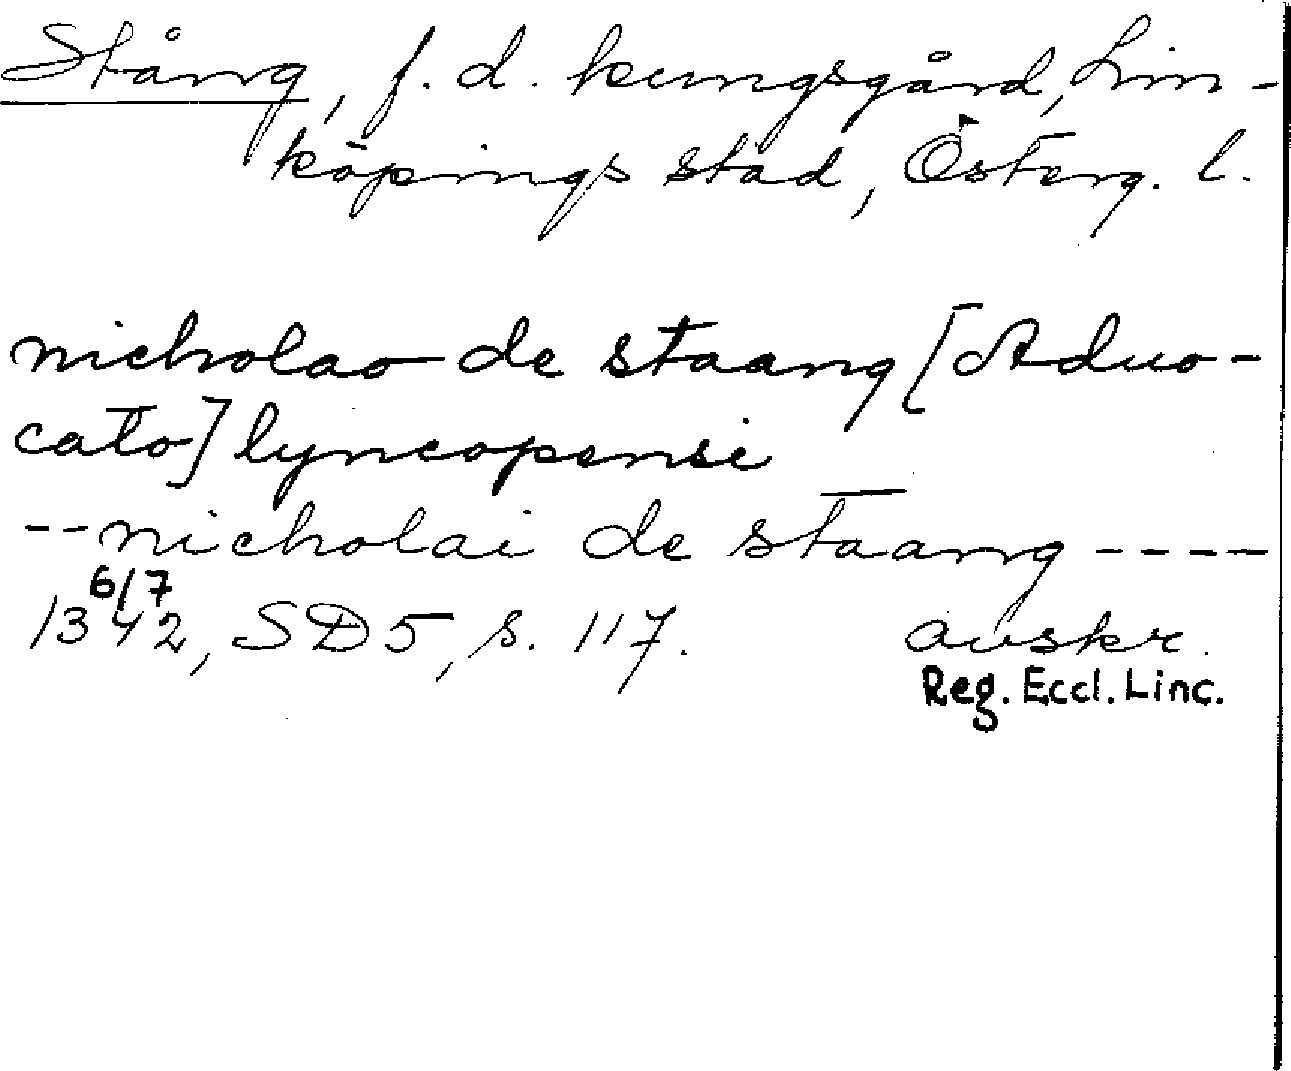 Stång, f. d. kungsgård, Lin-
köpings stad, Österg. l.
nicholao de staang [Aduo-
cato] lyncopensi
-- nicholai de staang ----
6/7
1342, SD5, s. 117. avskr.
Reg. Eccl. Linc.